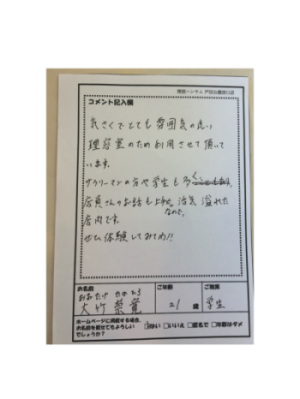 コメント記入欄
気さくでとても雰囲気の良い
理容室のため利用させて頂いて
います。
サラリーマンの方や学生も多く
店員さんのお話も上手なので、活気溢れた
店内です。
ぜひ体験してみては!!
お名前
ご年齢
ご職業
おおたけ
大竹
21 歳
学生
ホームページに掲載する場合、
お名前を載せてもよろしい
でしょうか?
はい □いいえ □匿名で □年齢はダメ